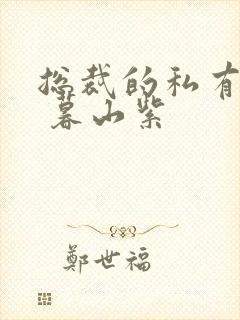 总裁的私有
暮山紫
鄭世福